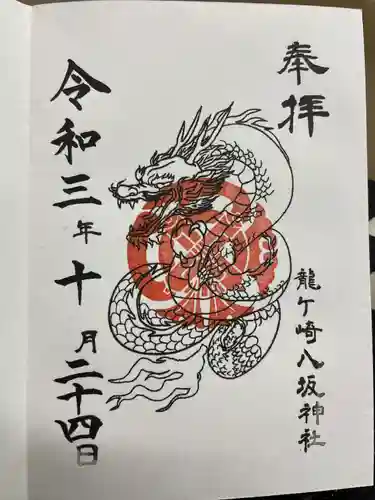 奉拝
龍ケ崎八坂神社
令和三年十月二十四日